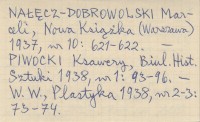 NAŁĘCZ-DOBROWOLSKI Mar-
celi, Nowa Książka (Warszawa)
1937, nr 10: 621-622. —
PIWOCKI Ksawery, Biul. Hist.
Sztuki 1938, nr 1: 93-96. —
W. W., Plastyka 1938, nr 2-3:
73-74.